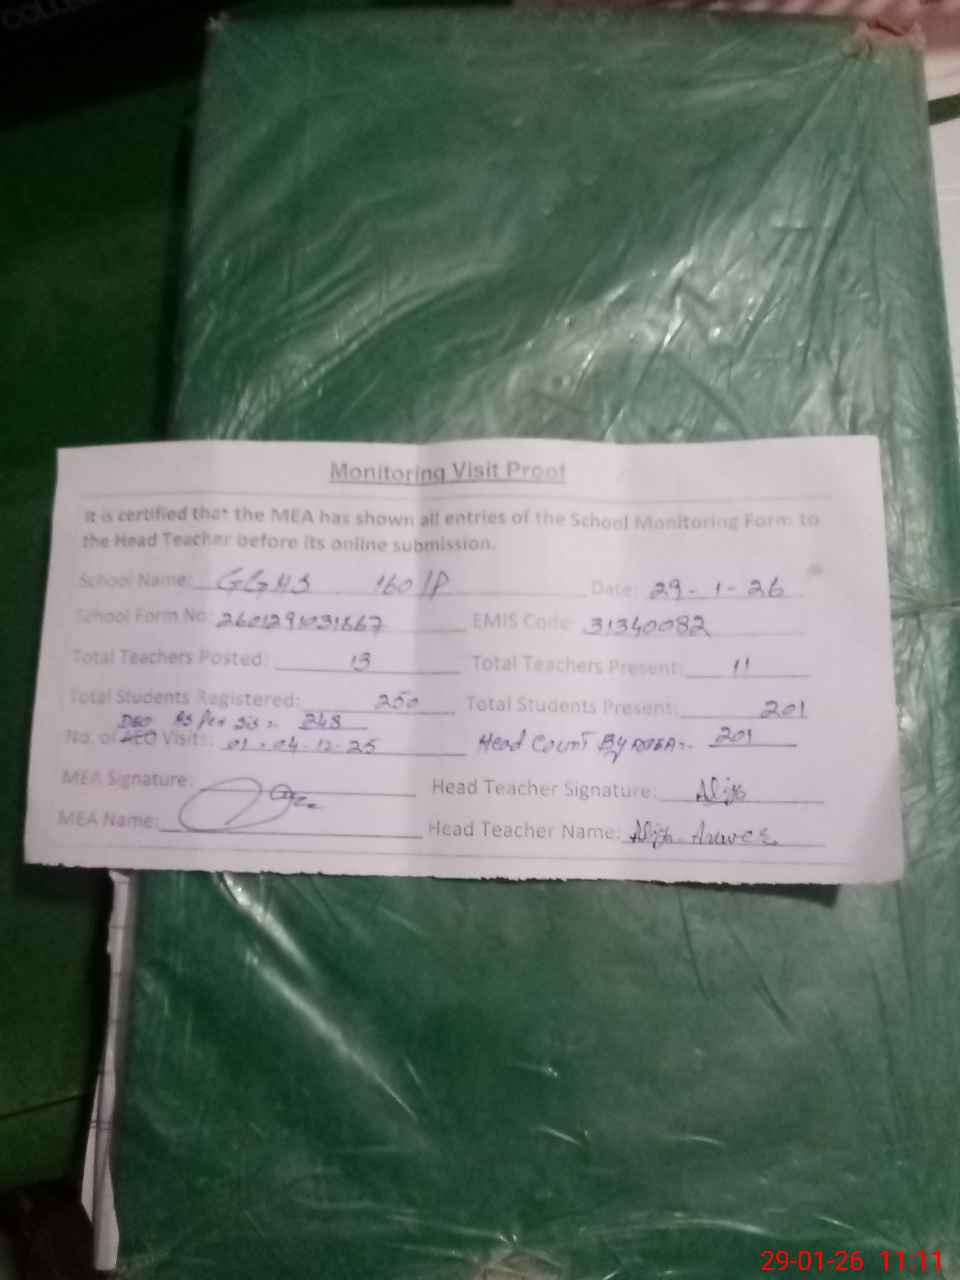 COLLE
Monitoring Visit Proof
It is certified that the MEA has shown all entries of the School Monitoring Form to
the Head Teacher before its online submission.
School Name: GGHS 160/P Date: 29-1-26
School Form No: EMIS Code: 31340082
Total Teachers Posted: 13 Total Teachers Present: 11
Total Students Registered: 250 Total Students Present: 201
DEO As Per Sis :- 248
No. of AEO Visits: 01 - 04-12-25 Head Count By :- 201
MEA Signature: Head Teacher Signature:
MEA Name: Head Teacher Name:
29-01-26 11:11